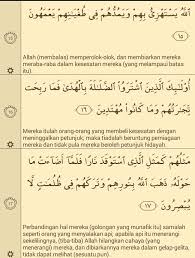 اللَّهُ يَسْتَهْزِئُ بِهِمْ وَيَمُدُّهُمْ فِي طُغْيَانِهِمْ يَعْمَهُونَ
١٥
Allah (membalas) memperolok-olok, dan membiarkan mereka
meraba-raba dalam kesesatan mereka (yang melampaui batas
itu).
أُولَٰئِكَ الَّذِينَ اشْتَرَوُا الضَّلَالَةَ بِالْهُدَىٰ فَمَا رَبِحَت
تِّجَارَتُهُمْ وَمَا كَانُوا مُهْتَدِينَ ١٦
Mereka itulah orang-orang yang membeli kesesatan dengan
meninggalkan petunjuk; maka tiadalah beruntung perniagaan
mereka dan tidak pula mereka beroleh petunjuk hidayah.
مَثَلُهُمْ كَمَثَلِ الَّذِي اسْتَوْقَدَ نَارًا فَلَمَّا أَضَاءَتْ مَا
حَوْلَهُ ذَهَبَ اللَّهُ بِنُورِهِمْ وَتَرَكَهُمْ فِي ظُلُمَاتٍ لَّا
يُبْصِرُونَ ١٧
Perbandingan hal mereka (golongan yang munafik itu) samalah
seperti orang yang menyalakan api; apabila api itu menerangi
sekelilingnya, (tiba-tiba) Allah hilangkan cahaya (yang
menerangi) mereka, dan dibiarkannya mereka dalam gelap-gelita,
tidak dapat melihat (sesuatu pun).